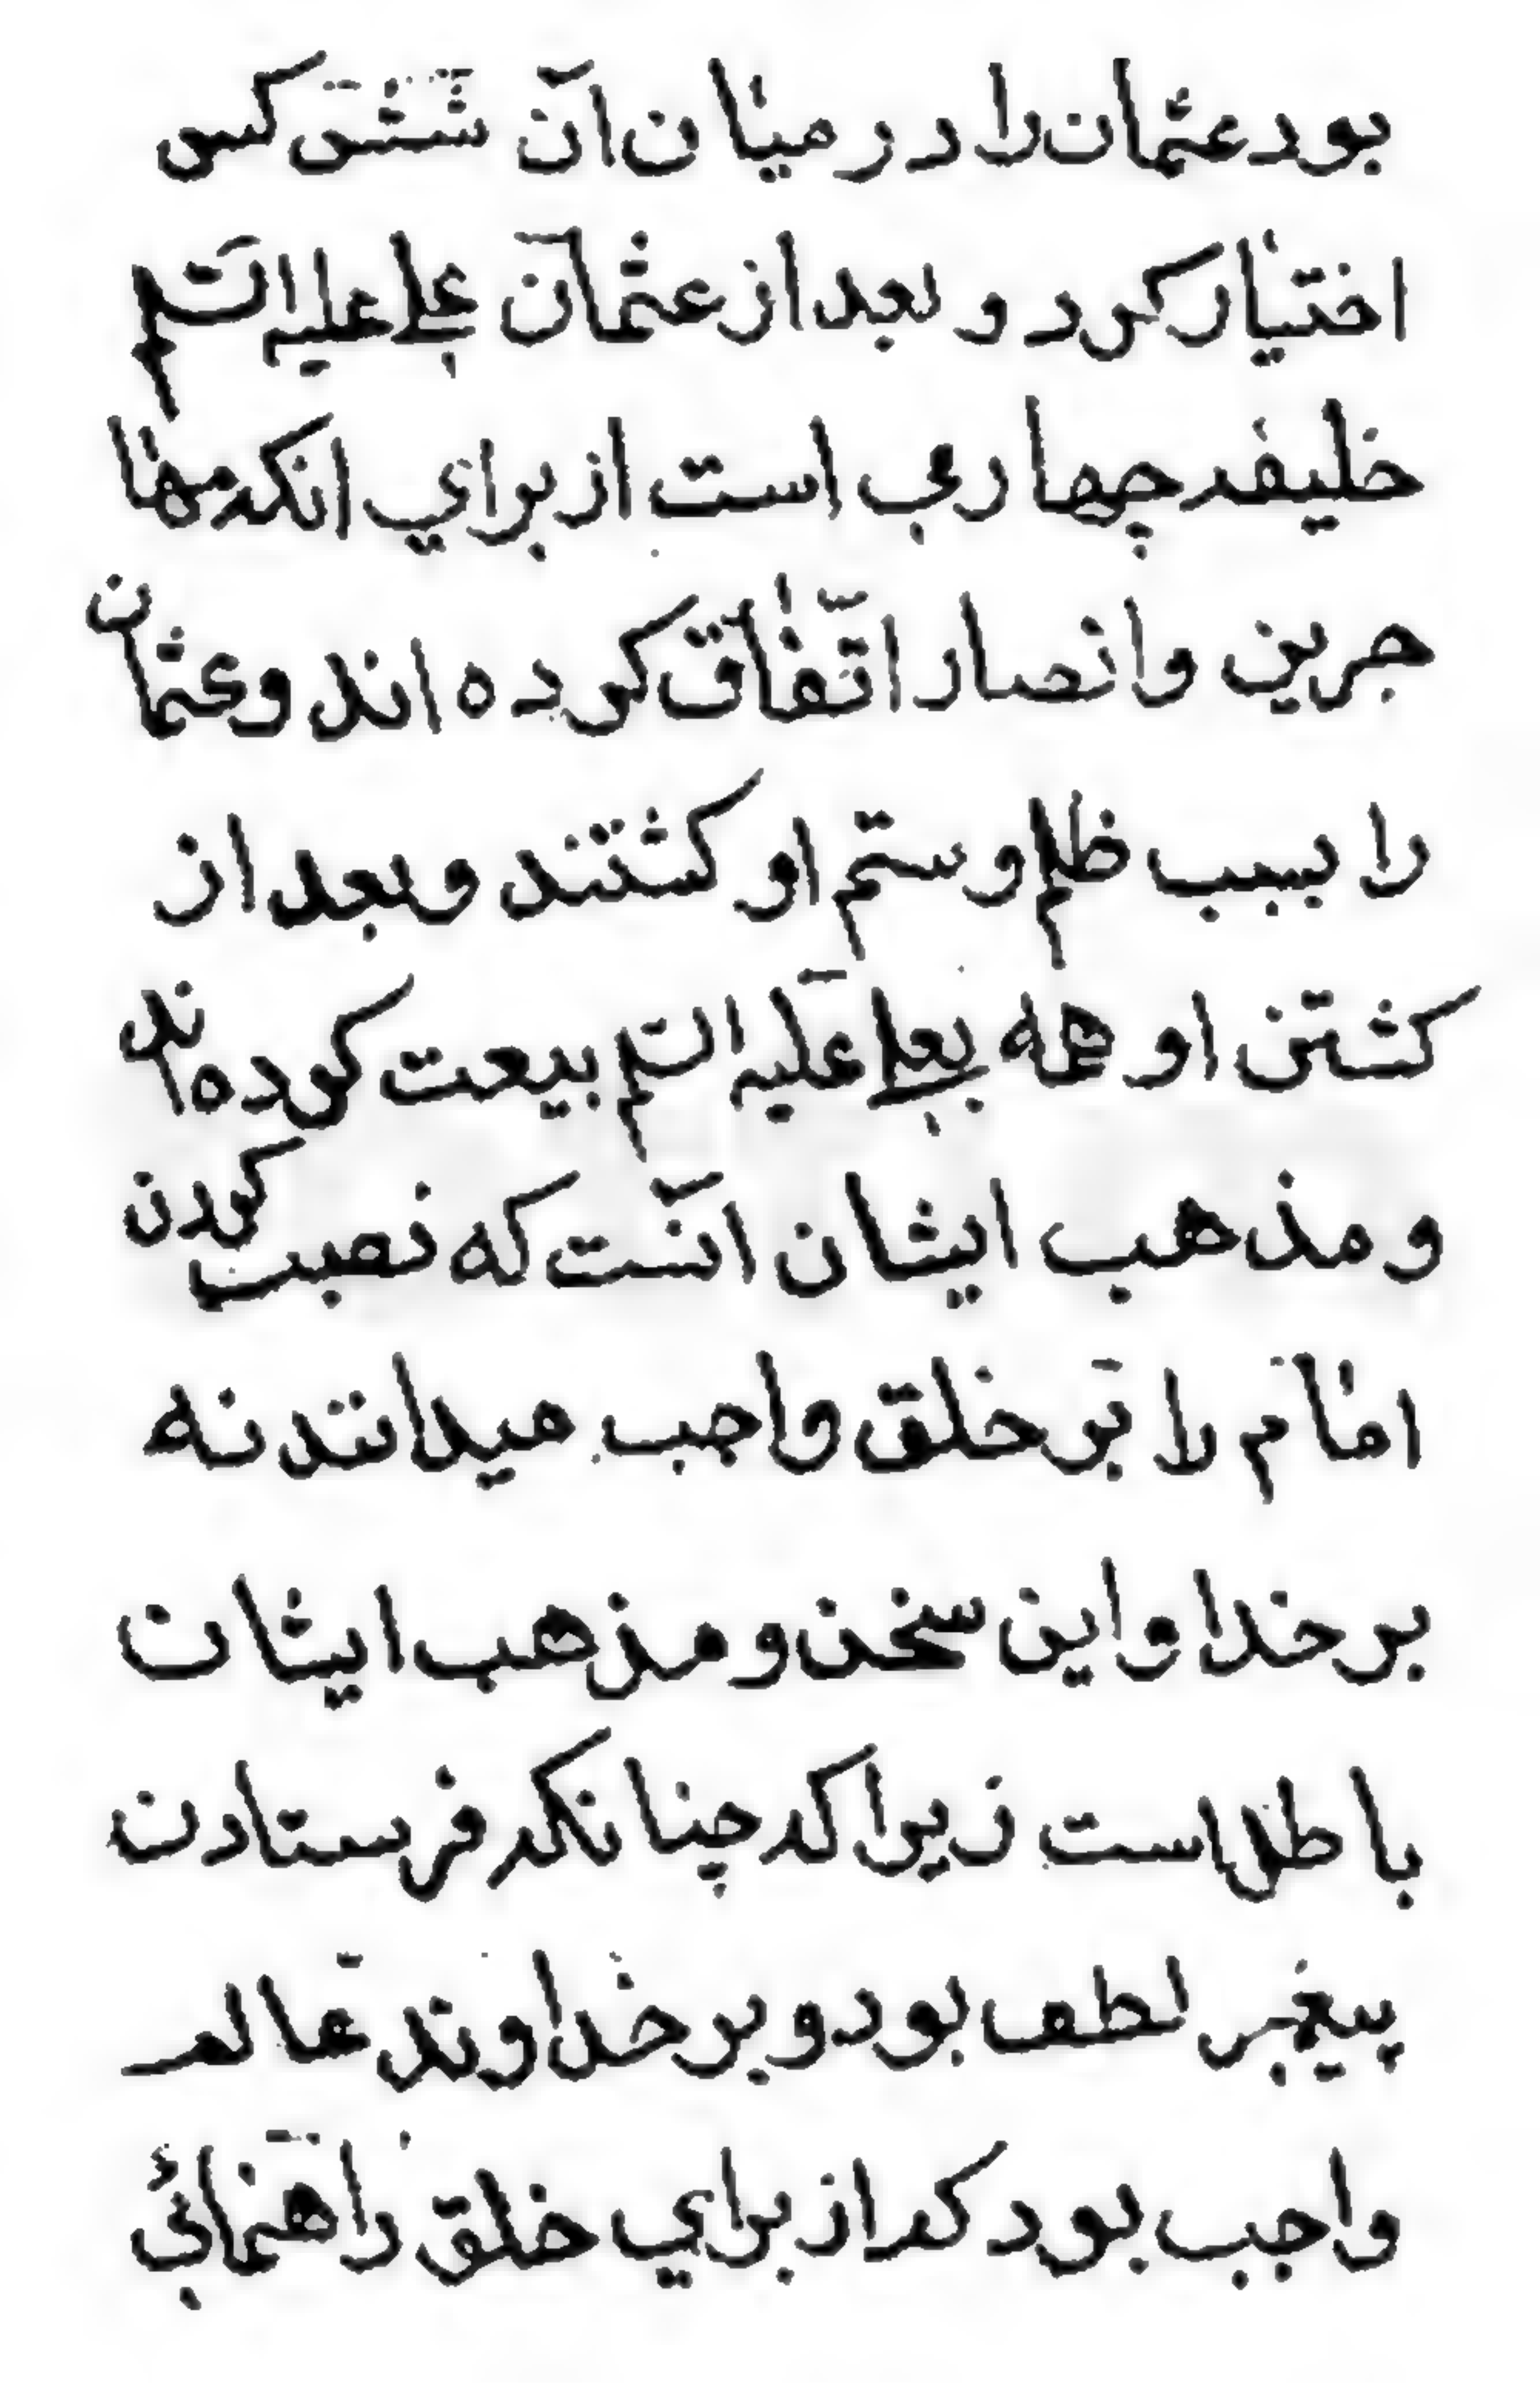 بود عثمان را در میان آن شش کس
اختیار کرد و بعد از عثمان علی علیه السلم
خلیفه چهارمی است از برای انکه مها
جرین و انصار اتّفاق کرده اند و عثمان
را بسبب ظلم و ستم او کشتند و بعد از
کشتن او همه بعلی علیه السلم بیعت کرده اند
و مذهب ایشان آنست که نصب کردن
امام را بر خلق واجب میدانند نه
بر خدا و این سخن و مذهب ایشان
باطل است زیرا که چنانکه فرستادن
پیغمبر لطف بود و بر خداوند عالم
واجب بود که از برای خلق راهنمائی